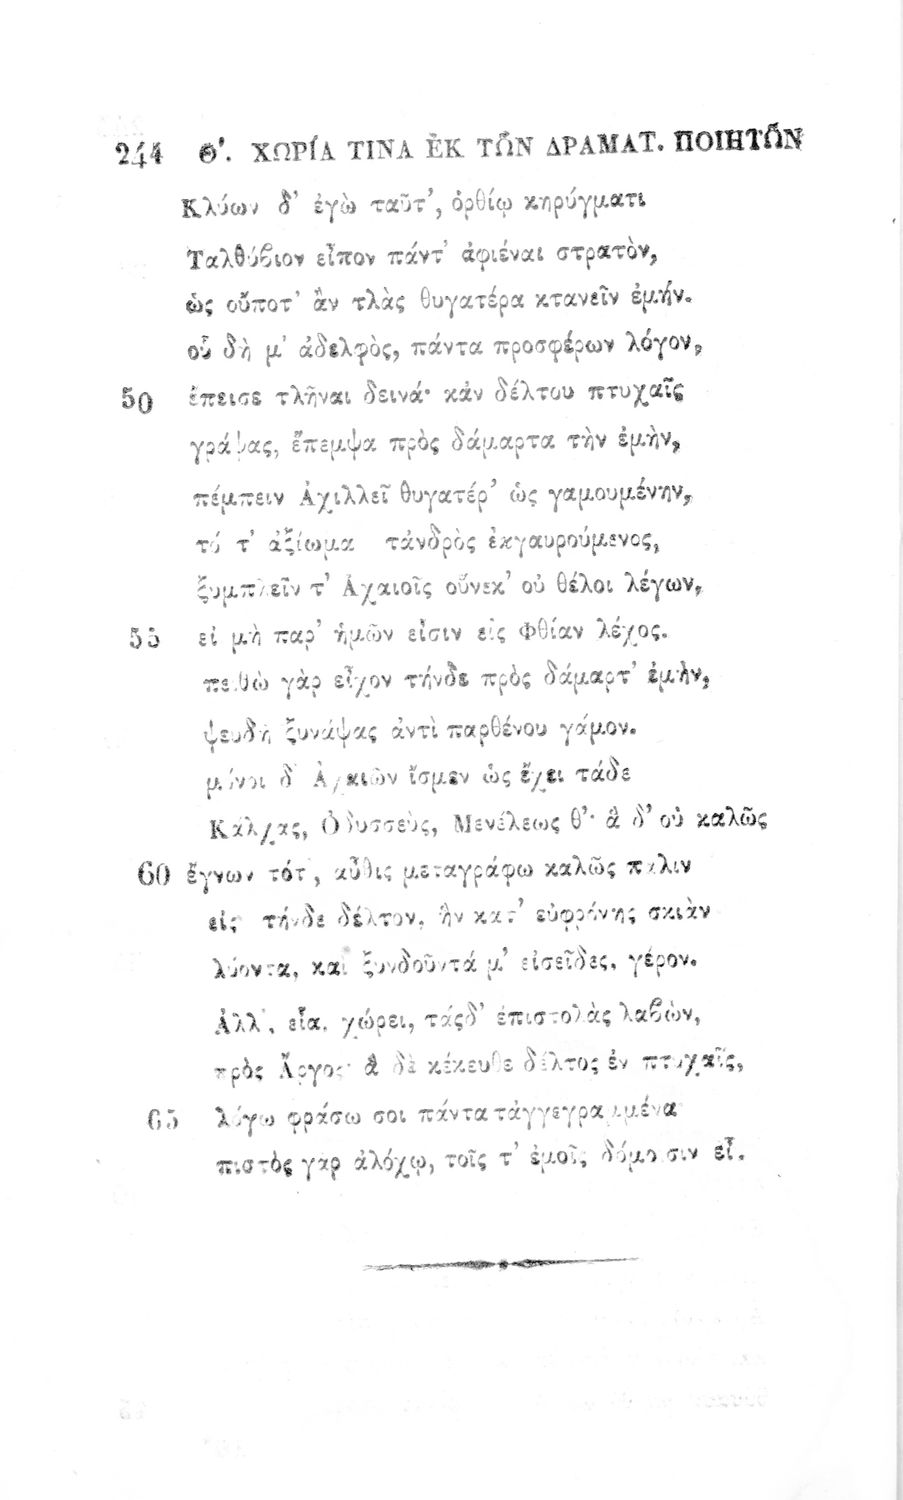 244 Θ'. ΧΩΡΊΑ ΤΙΝΑ ἘΚ ΤΩ͂Ν ΔΡΑΜΑΤ. ΠΟΙΗΤΩ͂Ν
Κλύων δ' ἐγὼ ταῦτ', ὀρθίῳ κηρύγματι
Ταλθύβιον εἶπον πάντ' ἀφιέναι στρατὸν,
ὡς οὔποτ' ἂν τλὰς θυγατέρα κτανεῖν ἐμήν.
οὗ δὴ μ' ἀδελφὸς, πάντα προσφέρων λόγον,
50 ἔπεισε τλῆναι δεινά· κἀν δέλτου πτυχαῖς
γράψας, ἔπεμψα πρὸς δάμαρτα τὴν ἐμὴν,
πέμπειν Ἀχιλλεῖ θυγατέρ' ὡς γαμουμένην,
τό τ' ἀξίωμα τἀνδρὸς ἐκγαυρούμενος,
ξυμπλεῖν τ' Ἀχαιοῖς οὕνεκ' οὐ θέλοι λέγων,
55 εἰ μὴ παρ' ἡμῶν εἶσιν εἰς Φθίαν λέχος.
πειθὼ γὰρ εἶχον τήνδε πρὸς δάμαρτ' ἐμὴν,
ψευδῆ ξυνάψας ἀντὶ παρθένου γάμον.
μόνοι δ' Ἀχαιῶν ἴσμεν ὡς ἔχει τάδε
Κάλχας, Ὀδυσσεὺς, Μενέλεως θ'· ἃ δ' οὐ καλῶς
60 ἔγνων τότ', αὖθις μεταγράφω καλῶς πάλιν
εἰς τήνδε δέλτον, ἣν κατ' εὐφρόνης σκιὰν
λύοντα, καὶ ξυνδοῦντά μ' εἰσεῖδες, γέρον.
Ἀλλ', εἶα, χώρει, τάςδ' ἐπιστολὰς λαβὼν,
πρὸς Ἄργος· ἃ δὲ κέκευθε δέλτος ἐν πτυχαῖς,
65 λόγῳ φράσω σοι πάντα τἀγγεγραμμένα·
πιστὸς γὰρ ἀλόχῳ, τοῖς τ' ἐμοῖς δόμοισιν εἶ.